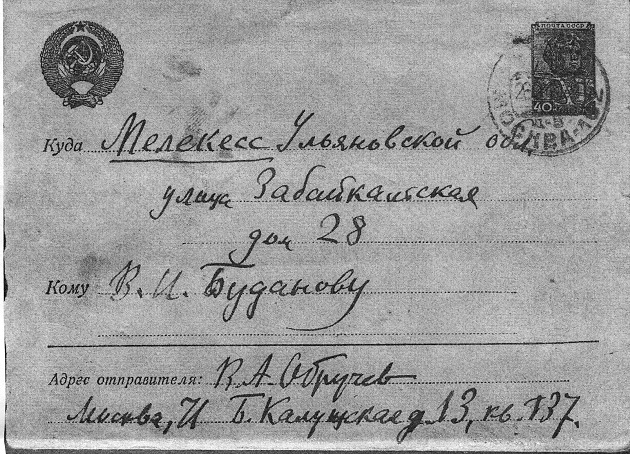 ПОЧТА СССР
40
МОСКВА
Куда Мелекесс Ульяновской обл,
улица Забайкальская
дом 28
Кому В. И. Буданову
Адрес отправителя: В. А. Обручев
Москва, Б. Калужская д. 13, кв. 137.